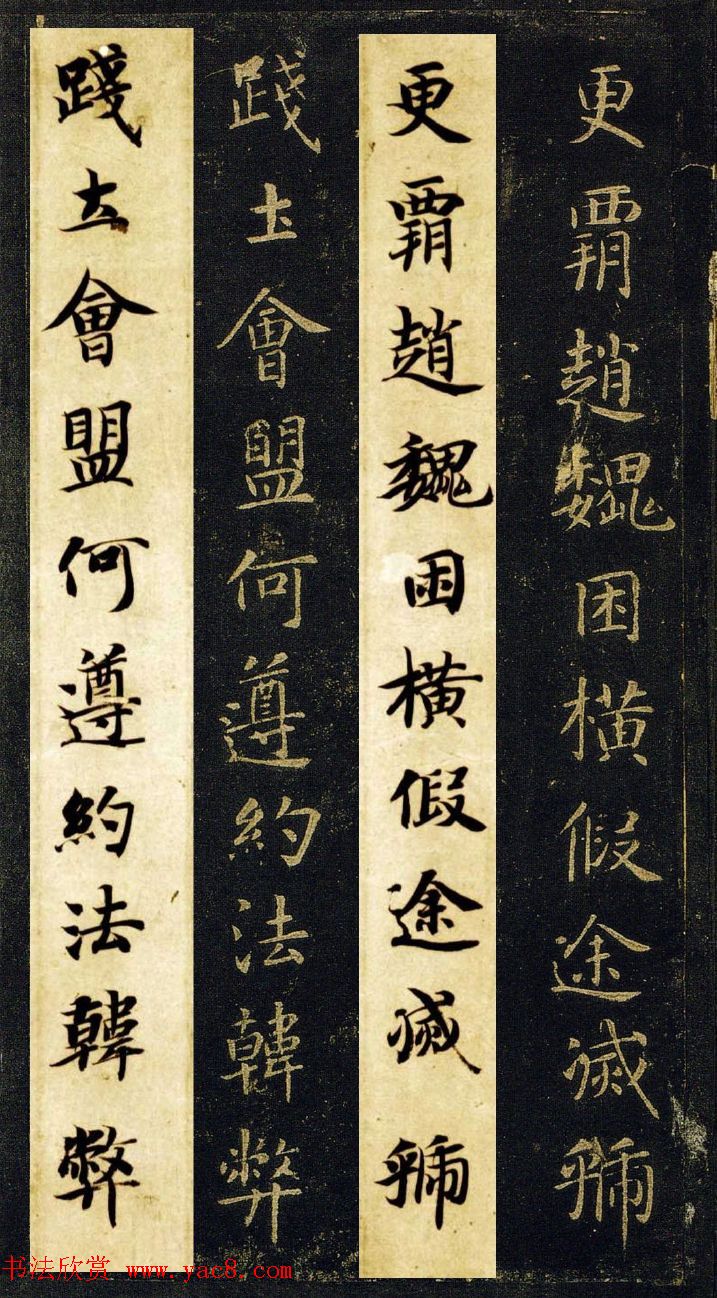 更霸趙魏困橫假途滅虢
更霸趙魏困橫假途滅虢
踐土會盟何遵約法韓弊
踐土會盟何遵約法韓弊
书法欣赏 www.yac8.com